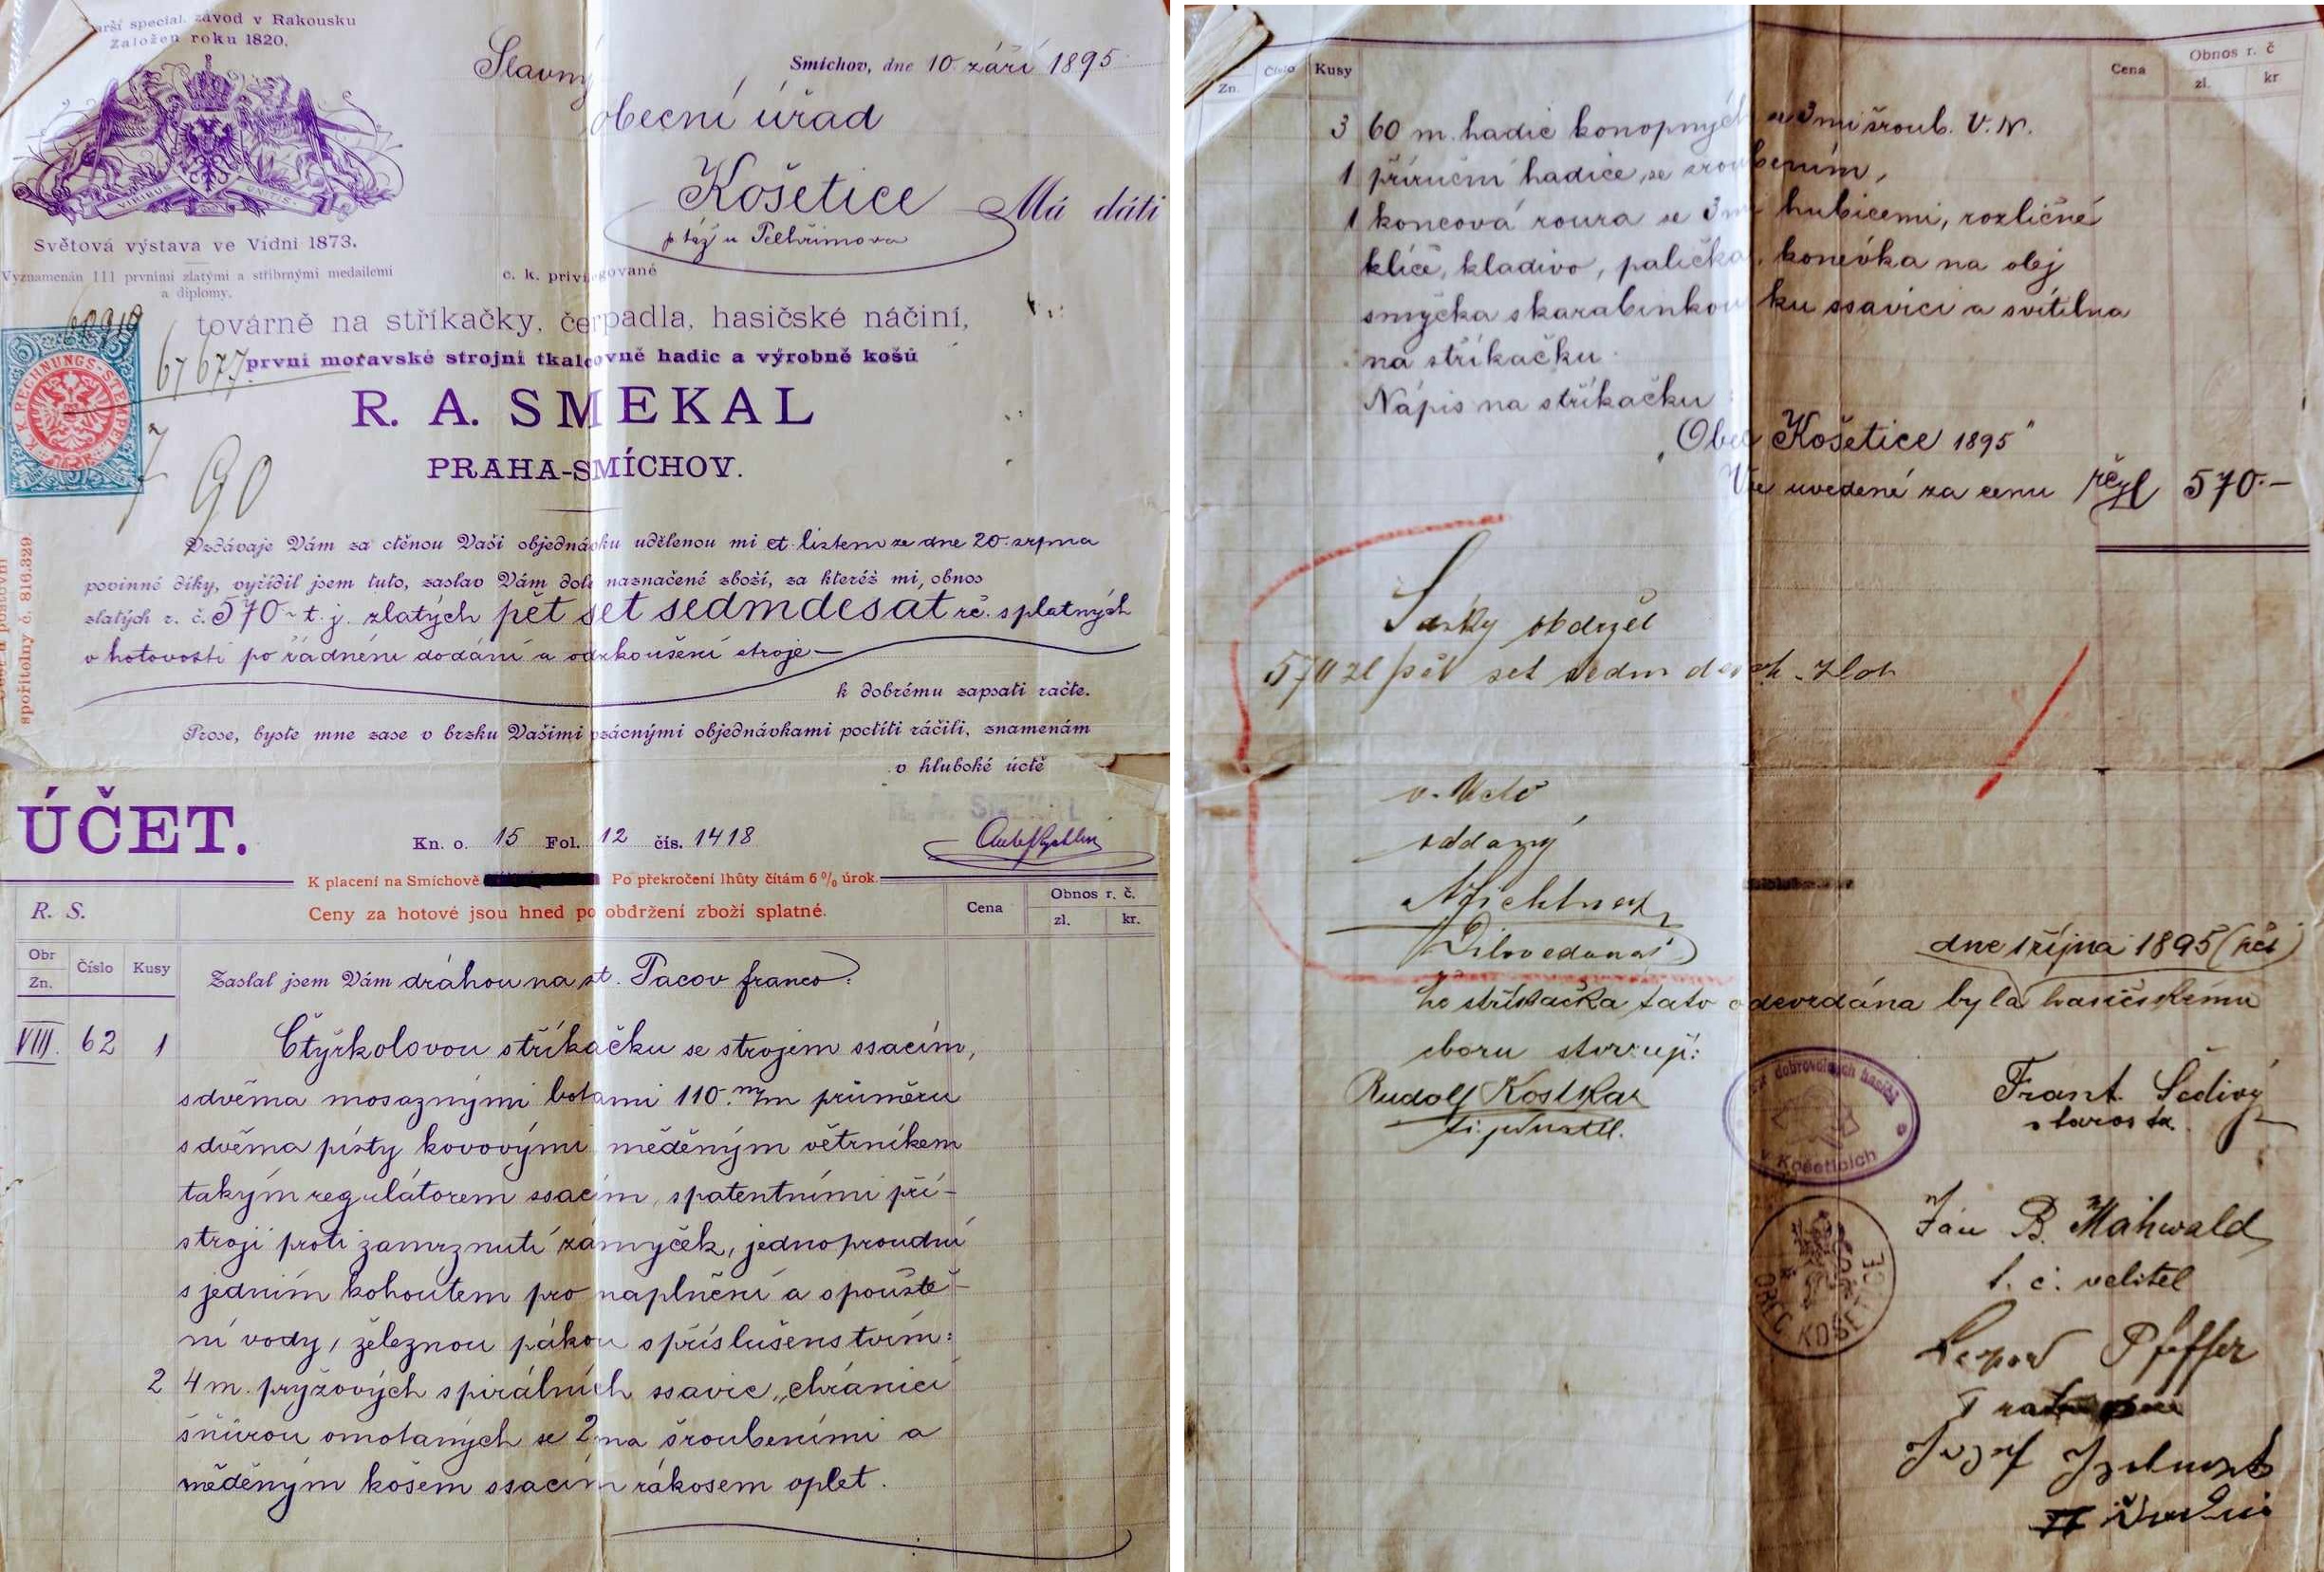 special. závod v Rakousku
Založen roku 1820.
VIRIBUS UNITIS.
Světová výstava ve Vídni 1873.
Vyznamenán 111 prvními zlatými a stříbrnými medailemi
a diplomy.
Smíchov, dne 10 září 1895
Slavný
obecní úřad
Košetice Má dáti
p. táž u Pelhřimova
c. k. privilegované
továrně na stříkačky, čerpadla, hasičské náčiní,
první moravské strojní tkalcovně hadic a výrobně košů
R. A. SMEKAL
PRAHA-SMÍCHOV.
K. K. RECHNUNGS-STEMPEL
67677.
90
spořitelny č. 816.329.
Vzdávaje Vám za ctěnou Vaši objednávku udělenou mi ct. listem ze dne 20. srpna
povinné díky, vyřídil jsem tuto, zaslav Vám dole naznačené zboží, za kteréž mi, obnos
zlatých r. č. 570 - t. j. zlatých pět set sedmdesát rč. splatných
v hotovosti po řádném dodání a odzkoušení stroje —
k dobrému zapsati račte.
Prose, byste mne zase v brzku Vašimi vzácnými objednávkami poctíti ráčili, znamenám
v hluboké úctě
R. A. SMEKAL
ÚČET.
Kn. o. 15 Fol. 12 čís. 1418
K placení na Smíchově Po překročení lhůty čítám 6% úrok.
Ceny za hotové jsou hned po obdržení zboží splatné.
R. S.
Cena
Obnos r. č.
zl. kr.
Obr
Zn. Číslo Kusy
Zaslal jsem Vám dráhou na st. Pacov franco:
VIII. 62 1 Čtyřkolovou stříkačku se strojem ssacím,
s dvěma mosaznými botami 110 m/m průměru
s dvěma písty kovovými měděným větrníkem
takým regulátorem ssacím, s patentními pří-
stroji proti zamrznutí zámyček, jednoproudní
s jedním kohoutem pro naplnění a spouště-
ní vody, železnou pákou s příslušenstvím:
2 4 m. pryžových spirálních ssavic, „chránící
šňůrou omotaných se 2ma šroubeními a
měděným košem ssacím rákosem oplet.
Zn. Číslo Kusy
Cena
Obnos r. č
zl. kr
3 60 m. hadic konopných se 3mi šroub. V. N.
1 příruční hadice, se šroubením,
1 koncová roura se 3mi hubicemi, rozličné
klíče, kladivo, palička, konévka na olej
smyčka s karabinkou ku ssavici a svítilna
na stříkačku.
Nápis na stříkačku:
„Obec Košetice 1895"
Vše uvedené za cenu rčzl 570.—
S díky obdržel
570 zl pět set sedmdesát zlat
v. Úctě
oddaný
dne 1 října 1895
že stříkačka tato odevzdána byla hasičskému
sboru stvrzují:
Rudolf Kostka
dobrovolných hasičů
v Košeticích
OBEC KOŠETICE
Frant. Šedivý
starosta
Jan B. Mahwald
t. č. velitel
Leopold Pfeffer
Josef